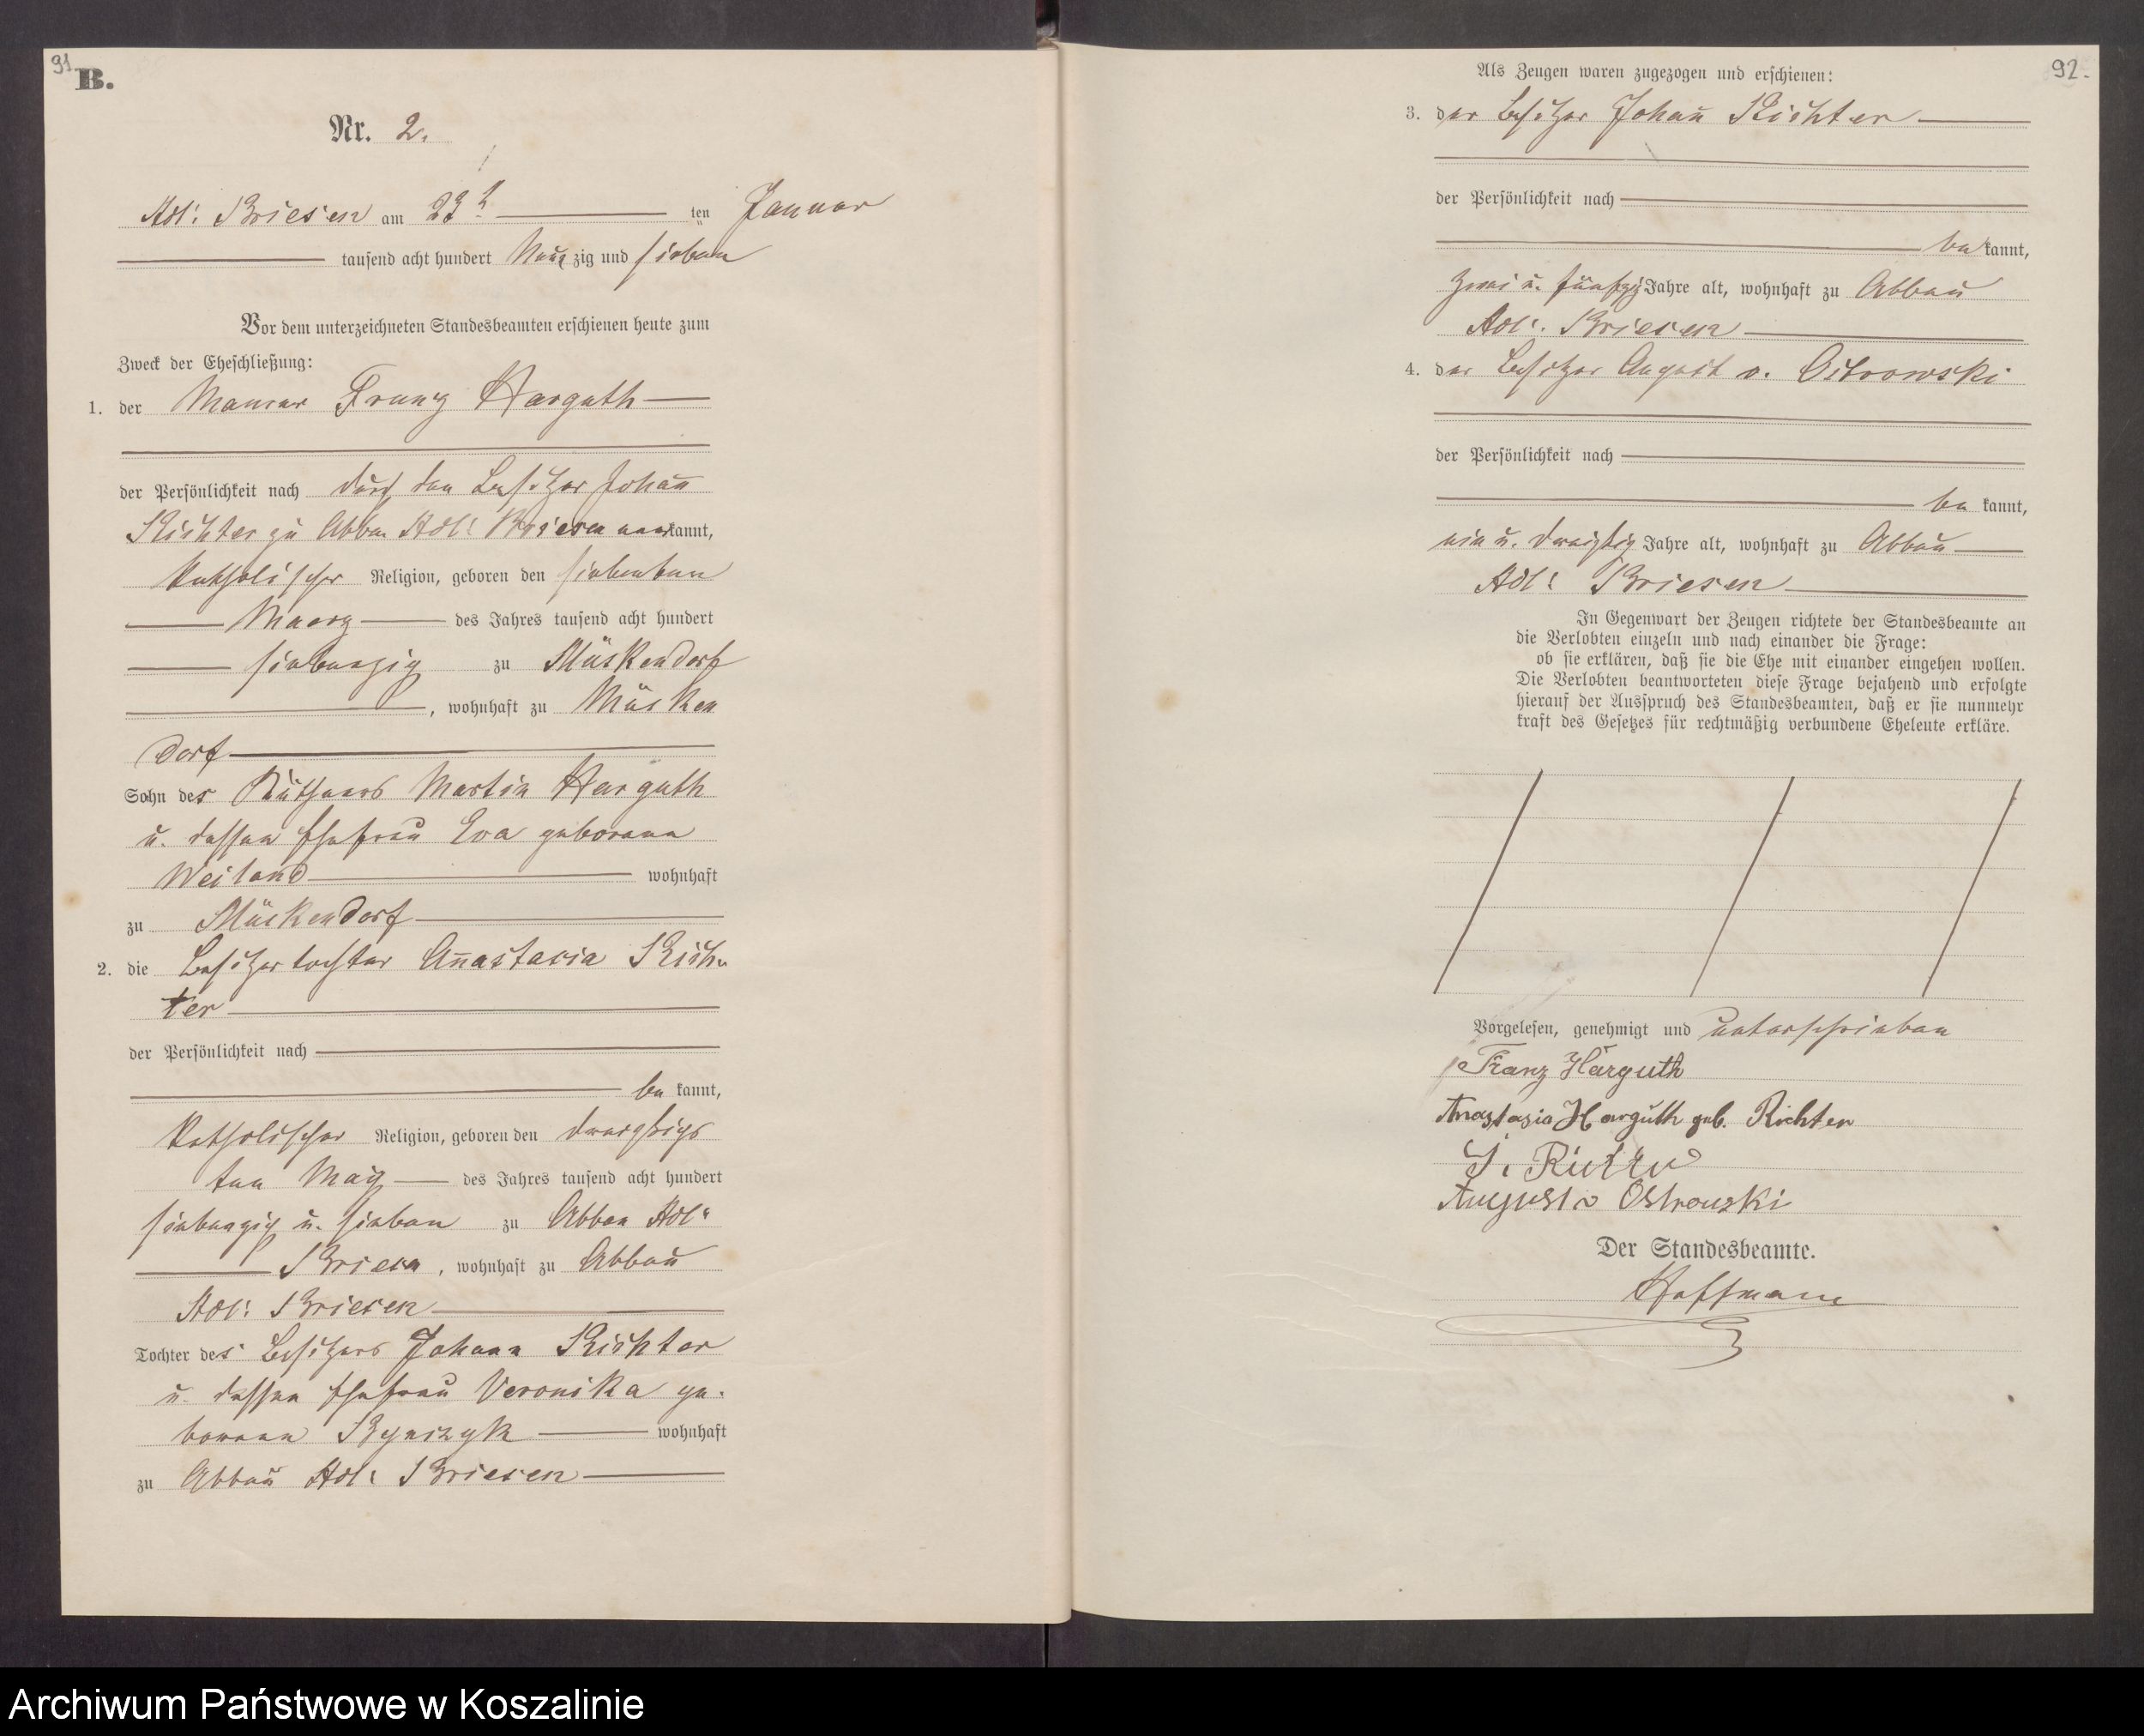 91.
B.
Nr. 2.
Adl: Briesen am 23t ten Januar
tausend acht hundert Neun zig und sieben
Vor dem unterzeichneten Standesbeamten erschienen heute zum
Zweck der Eheschließung:
1. der Maurer Franz Harguth
der Persönlichkeit nach durch den Besitzer Johann̄
Richter zu Abbau Adl: Briesen anerkannt,
katholischer Religion, geboren den siebenten
Maerz des Jahres tausend acht hundert
siebenzig zu Müskendorf
, wohnhaft zu Müsken
dorf
Sohn des Käthners Martin Harguth
u. dessen Ehefrau Eva geborene
Weiland wohnhaft
zu Müskendorf
2. die Besitzertochter An̄astasia Rich-
ter
der Persönlichkeit nach
be kannt,
katholischer Religion, geboren den zwanzigs
ten May des Jahres tausend acht hundert
siebenzig u. sieben zu Abbau Adl:
Briesen, wohnhaft zu Abbau
Adl: Briesen
Tochter des Besitzers Johann Richter
u. dessen Ehefrau Veronika ge-
borene wohnhaft
zu Abbau Adl: Briesen
92.
Als Zeugen waren zugezogen und erschienen:
3. der Besitzer Johan̄ Richter
der Persönlichkeit nach
be kannt,
zwei u. fünfzig Jahre alt, wohnhaft zu Abbau
Adl: Briesen
4. der Besitzer August v. Ostrowski
der Persönlichkeit nach
be kannt,
ein u. dreißig Jahre alt, wohnhaft zu Abbau
Adl: Briesen
In Gegenwart der Zeugen richtete der Standesbeamte an
die Verlobten einzeln und nach einander die Frage:
ob sie erklären, daß sie die Ehe mit einander eingehen wollen.
Die Verlobten beantworteten diese Frage bejahend und erfolgte
hierauf der Ausspruch des Standesbeamten, daß er sie nunmehr
kraft des Gesetzes für rechtmäßig verbundene Eheleute erkläre.
Vorgelesen, genehmigt und unterschrieben
Franz Harguth
Anastasia Harguth geb. Richter
J. Richter
August v Ostrouski
Der Standesbeamte.
Hoffmann
Archiwum Państwowe w Koszalinie